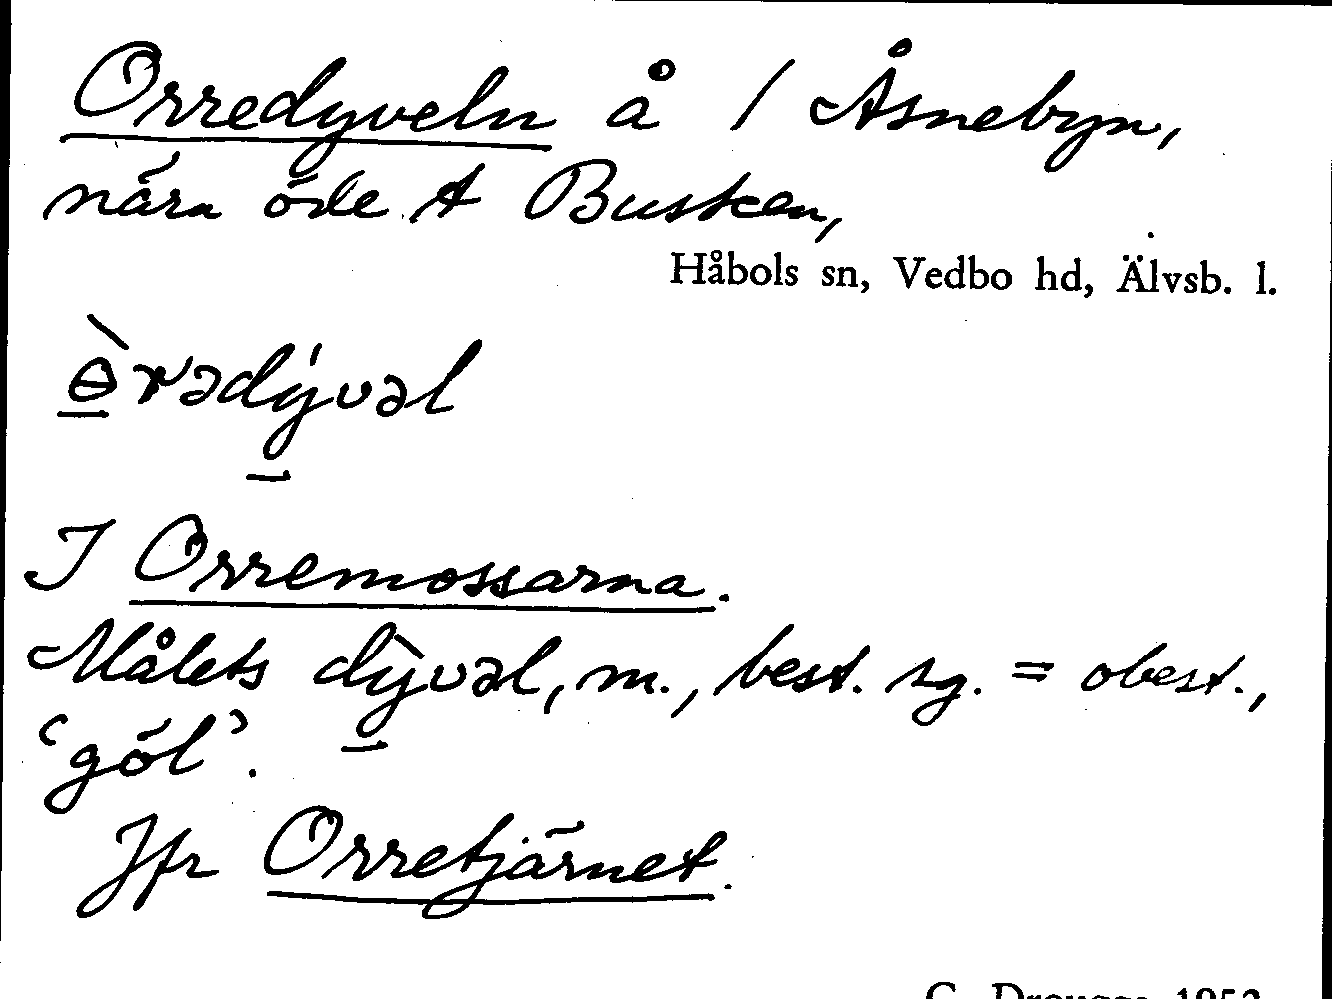 Orredyveln å / Åsnebyn,
nära öde t Busken,
Håbols sn, Vedbo hd, Älvsb. l.
ɵ̀rədy̍vəl
I Orremossarna.
Målets dy̍̀vəl, m., best. sg. = obest.,
‘göl’.
Jfr Orretjärnet.